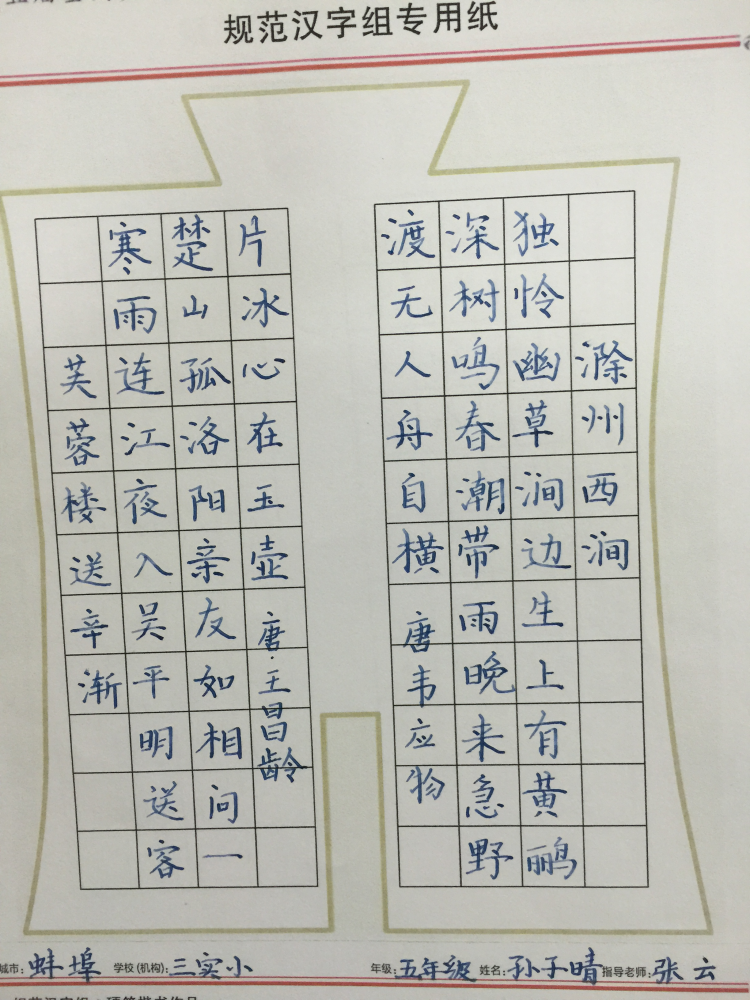 规范汉字组专用纸
芙蓉楼送辛渐
寒雨连江夜入吴平明送客
楚山孤洛阳亲友如相问一
片冰心在玉壶唐·王昌龄
滁州西涧
独怜幽草涧边生上有黄鹂
深树鸣春潮带雨晚来急野
渡无人舟自横唐韦应物
城市:蚌埠 学校(机构):三实小 年级:五年级 姓名:孙子晴 指导老师:张云